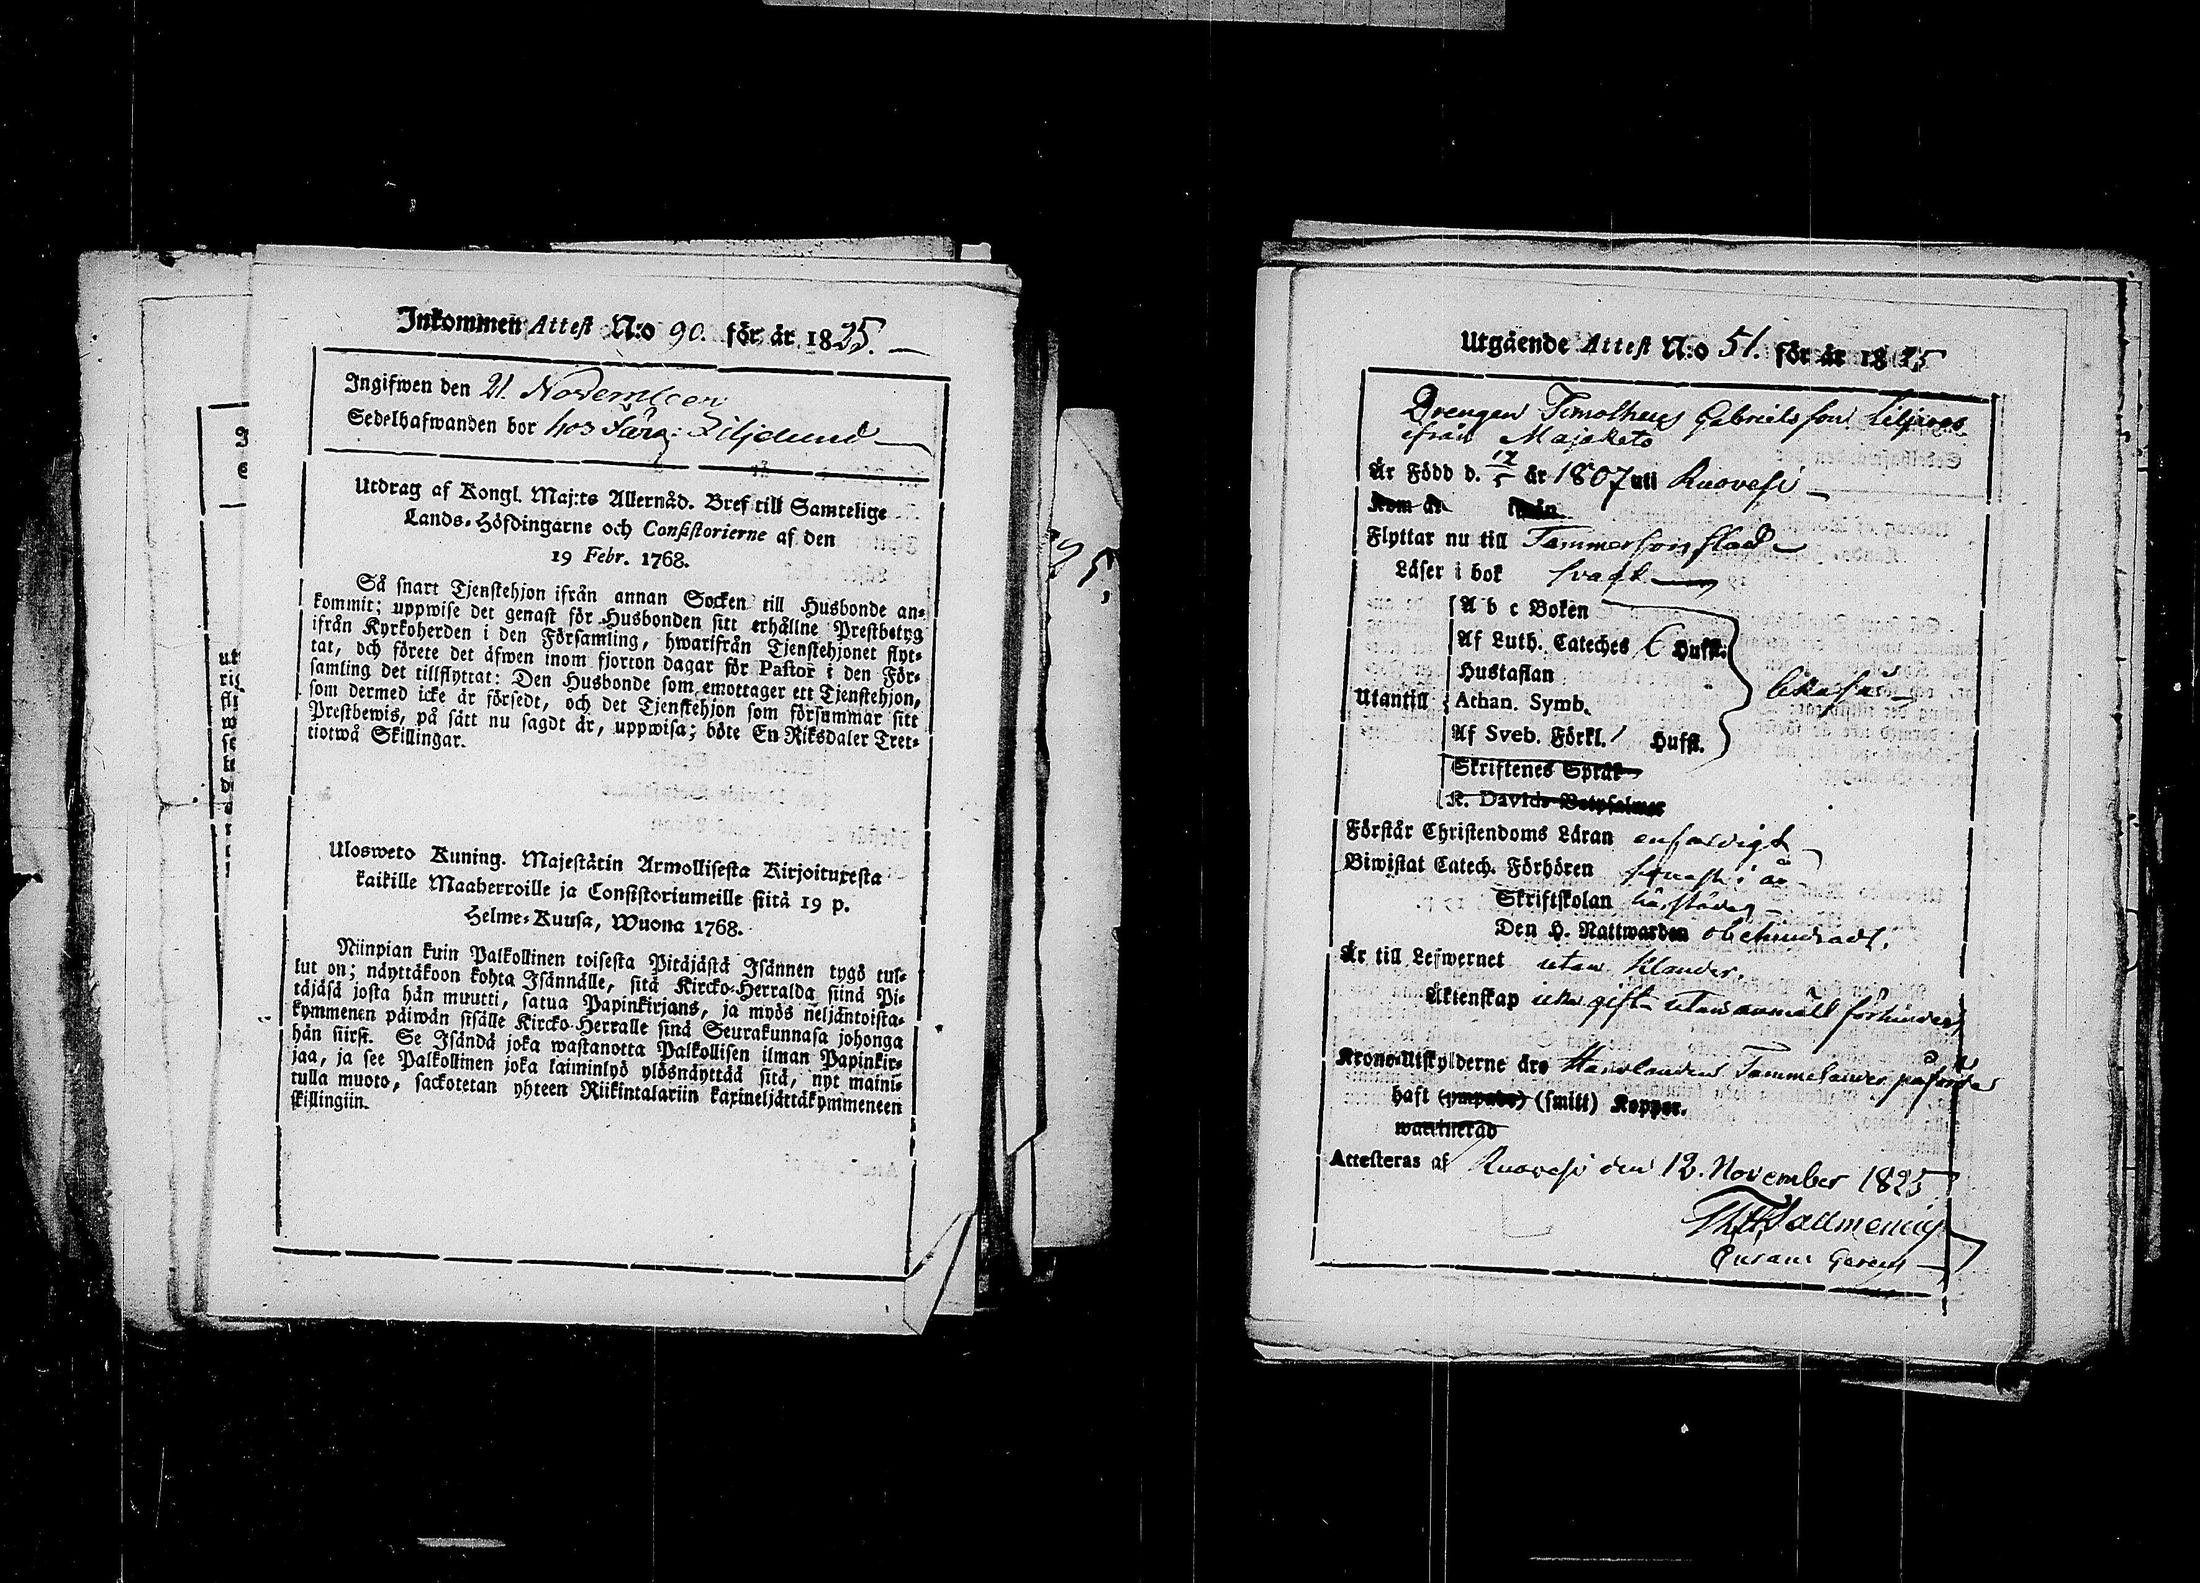 Inkommen Attest N:o 90. för år 1825.
Ingifwen den 21 November
Sedelhafwanden bor hos Färg: Liljelund
Utdrag af Kongl. Maj:ts Allernåd. Bref till Samtelige
Lands-Höfdingarne och Consistorierne af den
19 Febr. 1768.
Så snart Tjenstehjon ifrån annan Socken till Husbonde an-
kommit; uppwise det genast för Husbonden sitt erhållne Prestbetyg
ifrån Kyrkoherden i den Församling, hwarifrån Tjenstehjonet flyt-
tat, och förete det äfwen inom fjorton dagar för Pastor i den För-
samling det tillflyttat: Den Husbonde som emottager ett Tjenstehjon,
som dermed icke är försedt, och det Tjenstehjon som försummar sitt
Prestbewis, på sätt nu sagdt är, uppwisa; böte En Riksdaler Tret-
tiotwå Skillingar.
Ulosweto Kuning. Majestätin Armollisesta Kirjoituxesta
kaikille Maaherroille ja Consistoriumeille siitä 19 p.
Helme-Kuusa, Wuona 1768.
Niinpian kuin Palkollinen toisesta Pitäjästä Isännen tygö tul-
lut on; näyttäkoon kohta Isännälle, sitä Kircko-Herralda siinä Pi-
täjäsä josta hän muutti, saatua Papinkirjans, ja myös neljäntoista-
kymmenen päiwän sisälle Kircko-Herralle siinä Seurakunnasa johonga
hän siirsi. Se Isändä joka wastanotta Palkollisen ilman Papinkir-
jaa, ja see Palkollinen joka laiminlyö ylösnäyttää sitä, nyt maini-
tulla muoto, sackotetan yhteen Riikintalariin kaxineljättäkymmeneen
skillingiin.
Utgående Attest N:o 51. för år 1825
Drengen Timotheus Gabrielsson
ifrån Majaketo
Är Född d. 12/5 år 1807 uti Ruovesi
Kom år från
Flyttar nu till Tammerfors stad
Läser i bok svagt
A b c Boken
Af Luth. Cateches 6 Hufst.
Hustaflan
Utantill Athan. Symb.
Af Sveb. Förkl. Hufst.
Skriftenes Språk
K. Davids Botpsalmer
Förstår Christendoms Läran enfaldigt
Biwistat Catech. Förhören senast i år
Skriftskolan härstädes
Den H. Nattwarden obehindradt.
Är till Lefwernet utan klander.
Äktenskap utan anmält förhinder
Krono-Utskylderne äro
haft (ympade) (smitt) Koppor.
warit
Attesteras af Ruovesi den 12. November 1825
Gerens